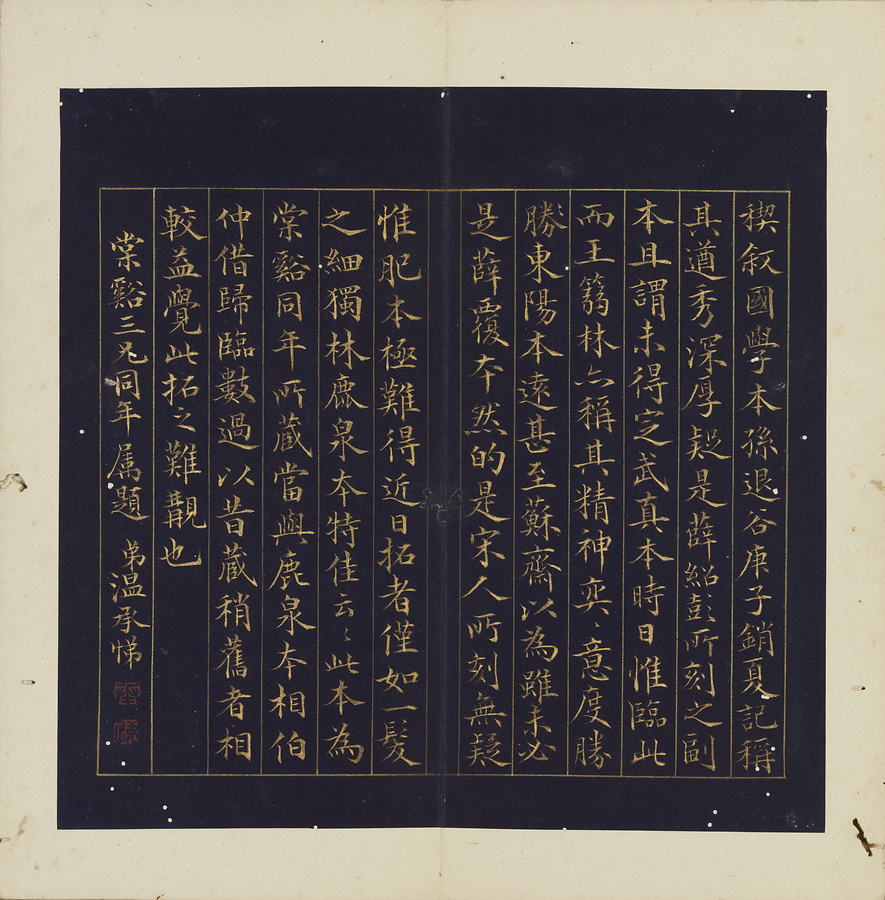 禊叙國學本孫退谷庚子銷夏記稱
其遒秀深厚疑是薛紹彭所刻之副
本且謂未得定武真本時日惟臨此
而王篛林亦稱其精神奕〻意度勝
勝東陽本遠甚至蘇齋以為雖未必
是薛覆本然的是宋人所刻無疑
惟肥本極難得近日拓者僅如一髮
之細獨林鹿泉本特佳云〻此本為
棠谿同年所藏當與鹿泉本相伯
仲借歸臨數過以昔藏稍舊者相
較益覺此拓之難覯也
棠谿三兄同年属題 弟溫承悌